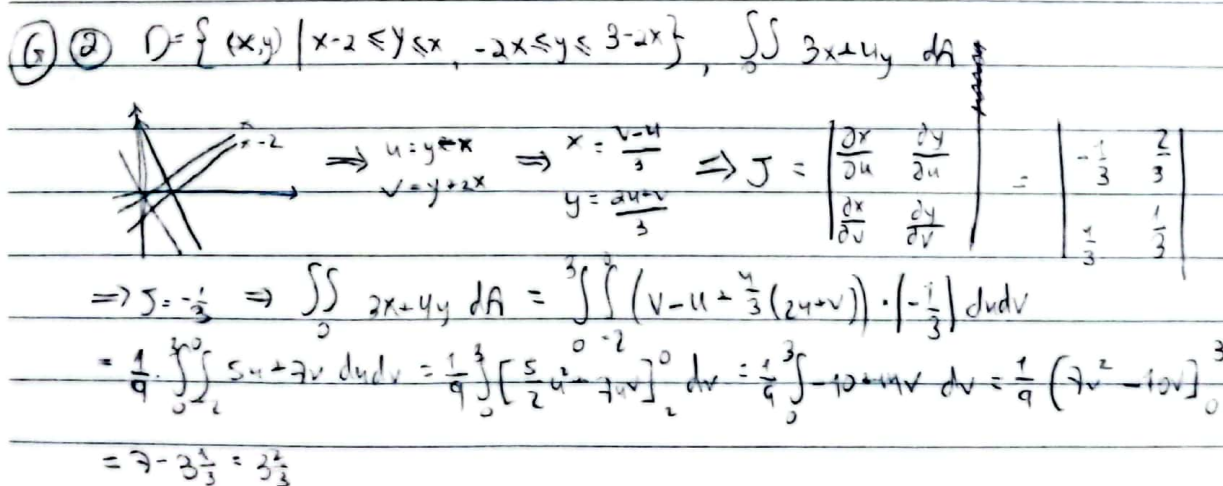 G ② D = { (x,y) | x-2 ≤ y ≤ x, -2x ≤ y ≤ 3-2x }, ∬_D 3x+4y dA
x x-2 ⇒ u = y-x v = y+2x ⇒ x = (v-u)/3 y = (2u+v)/3 ⇒ J = | ∂x/∂u ∂y/∂u ; ∂x/∂v ∂y/∂v | = | -1/3 2/3 ; 1/3 1/3 |
⇒ J = -1/3 ⇒ ∬_D 3x+4y dA = ∫_0^3 ∫_{-2}^0 (v-u+4/3(2u+v))·|-1/3| dudv
= 1/9 · ∫_0^3 ∫_{-2}^0 5u+7v dudv = 1/9 ∫_0^3 [5/2 u² + 7uv]_{-2}^0 dv = 1/9 ∫_0^3 -10+14v dv = 1/9 [7v² - 10v]_0^3
= 7 - 3 1/3 = 3 2/3